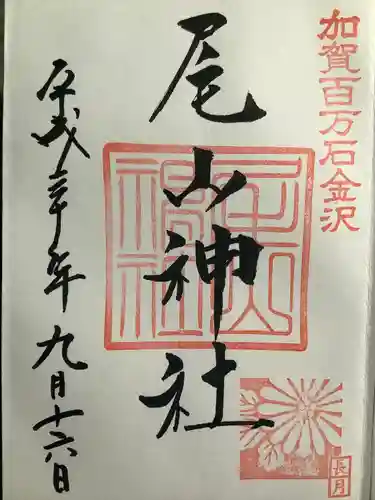 加賀百万石金沢
尾山神社
平成三十年九月十六日
長月